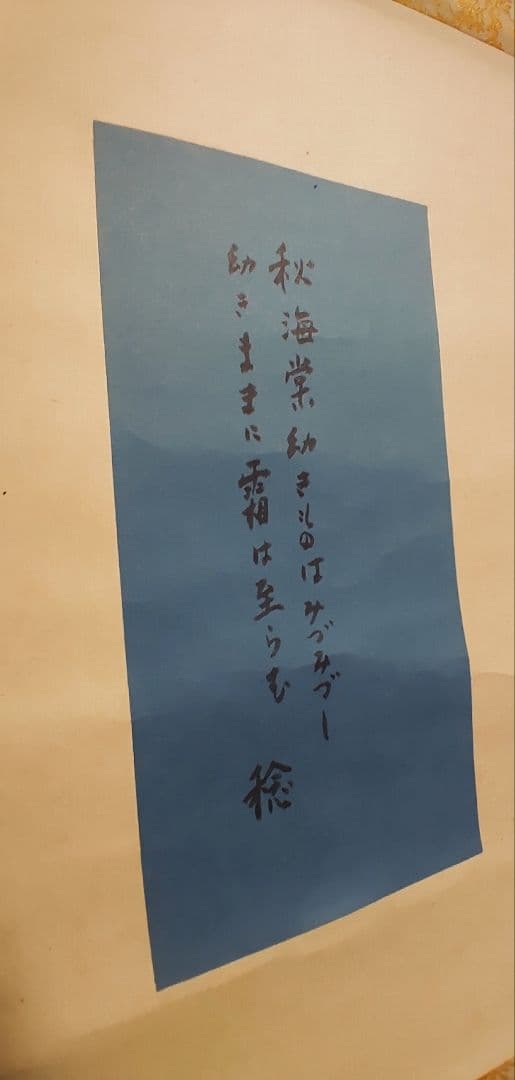 秋海棠幼きものはみづみづし
幼きままに霜は至らむ
稔